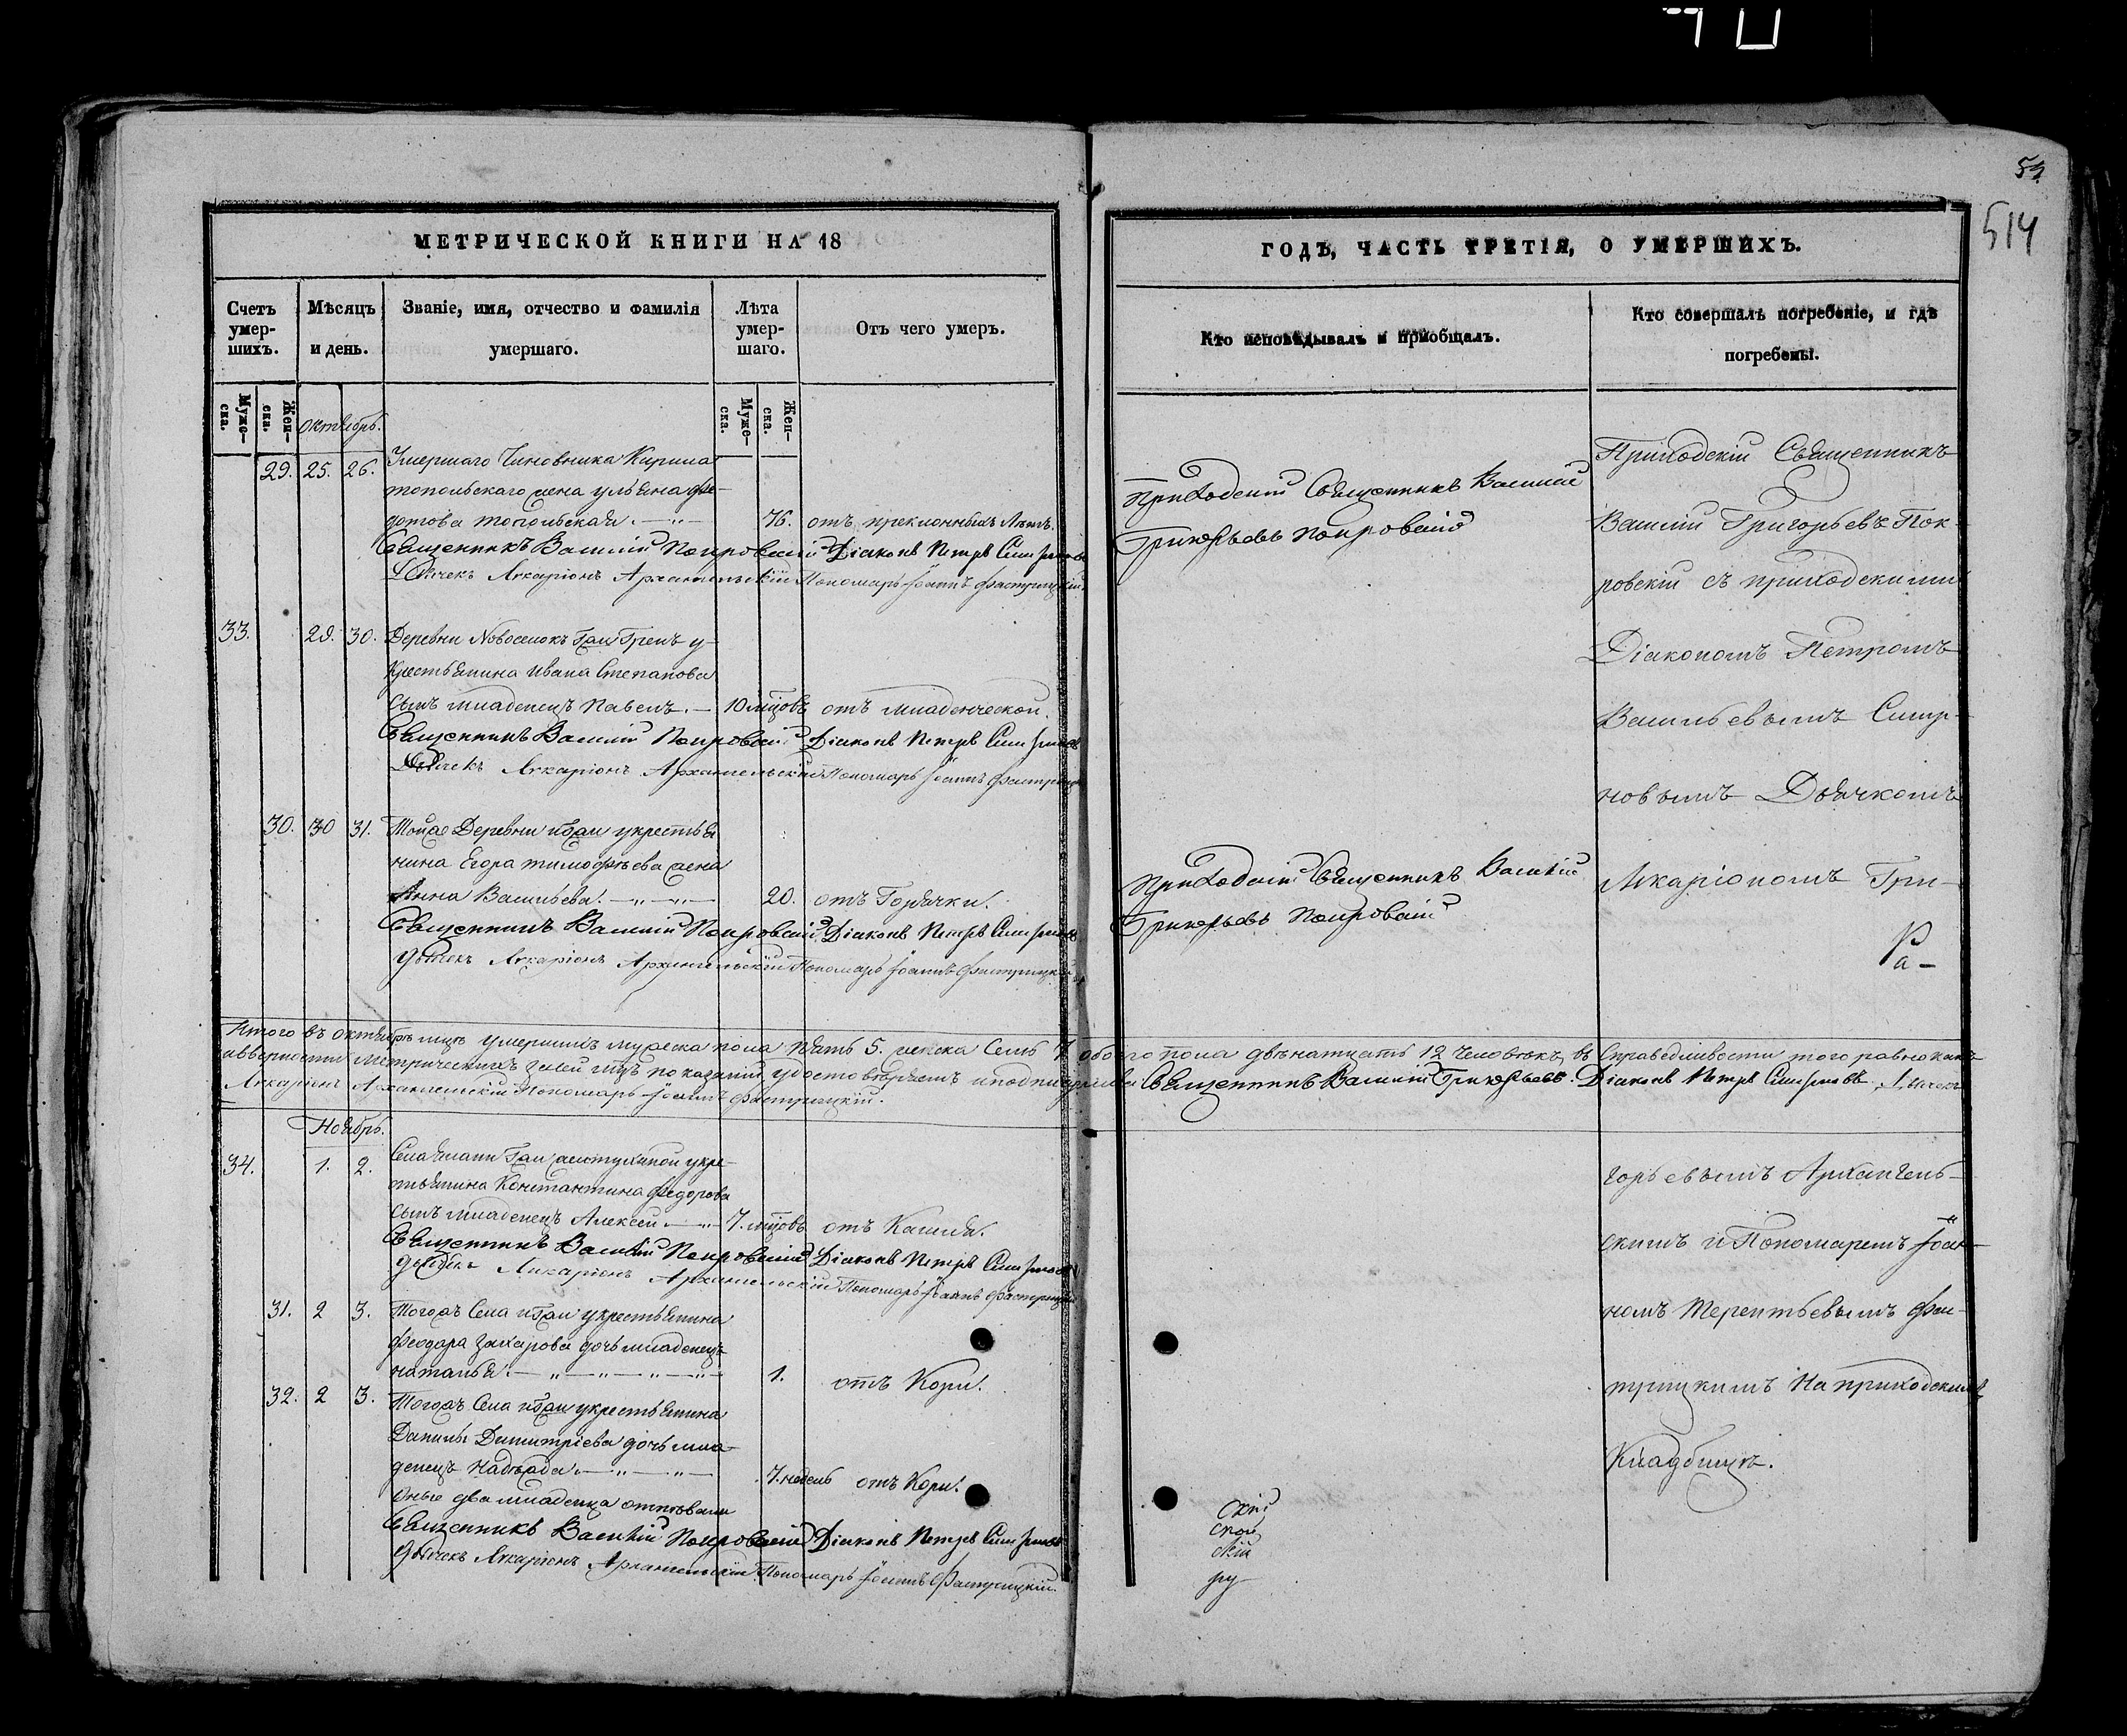 53
514
МЕТРИЧЕСКОЙ КНИГИ НА 18
ГОДЪ, ЧАСТЬ ТРЕТІЯ, О УМЕРШИХЪ.
Счетъ умер-шихъ.
Мѣсяцъ и день.
Званіе, имя, отчество и фамилія умершаго.
Лѣта умер-шаго.
Отъ чего умеръ.
Кто исповѣдывалъ и пріобщалъ.
Кто совершалъ погребеніе, и гдѣ погребены.
Муже-ска.
Жен-ска.
Муже-ска.
Жен-ска.
октябрь.
29. 25. 26. Умершаго Чиновника Кирила
топольскаго жена ульяна фе-
дотова топольская. 76. отъ преклонныхъ Лѣтъ.
Священникъ Василій Покровскій Діаконъ Петръ Смирновъ
Дьячекъ Макаріонъ Архангельскій Пономарь Іоаннъ
Приходскій Священникъ Василій
Григорьевъ Покровскій
33. 29. 30. Деревни Новоселокъ
крестьянина Ивана Степанова
сынъ младенецъ Павелъ. 10 мцовъ отъ младенческой.
Священникъ Василій Покровскій Діаконъ Петръ Смирновъ
Дьячекъ Архангельскій Пономарь Іоаннъ
30. 30 31. Тойже Деревни укрестья
нина Егора тимофѣева жена
Анна Васильева. 20. отъ Горячки.
Священникъ Василій Покровскій Діаконъ Петръ Смирновъ
Дьячекъ Архангельскій Пономарь Іоаннъ
Приходскій Священникъ Василій
Григорьевъ Покровскій
Итого въ октябрѣ мцѣ умершихъ мужеска пола пять 5. женска Семь 7 обоего пола двѣнатцать 12 Человѣкъ, въ Справедливости того равно какъ
и вѣрности Метрическихъ показаній удостовѣряемъ и подписуемся Священникъ Василій Григорьевъ. Діаконъ Петръ Смирновъ, Дьячекъ
Архангельскій Пономарь Іоаннъ
Ноябрь.
34. 1. 2. Села укре-
стьянина Константина Федорова
сынъ младенецъ Алексей 7. мцовъ отъ Кашля.
Священникъ Василій Покровскій Діаконъ Петръ Смирновъ
Архангельскій Пономарь Іоаннъ
31. 2 3. Тогожъ Села укрестьянина
Феодора Захарова дочь младенецъ
наталья. 1. отъ Кори.
32. 2 3. Тогожъ Села укрестьянина
Данилы Димитріева дочь мла-
денецъ Надѣжда. 7. недель отъ Кори.
Оные два младенца отпѣвали
Священникъ Василій Покровскій Діаконъ Петръ Смирновъ
Дьячекъ Архангельскій Пономарь Іоаннъ
Приходскій Священникъ
Василій Григорьевъ Пок-
ровскій съ приходскими
Діакономъ Петромъ
Васильевымъ Смир-
новымъ Дьячкомъ
Гри-
горьевымъ Архангель-
скимъ и Пономаремъ Іоан-
номъ Терентьевымъ
На приходскомъ
Кладбищѣ.